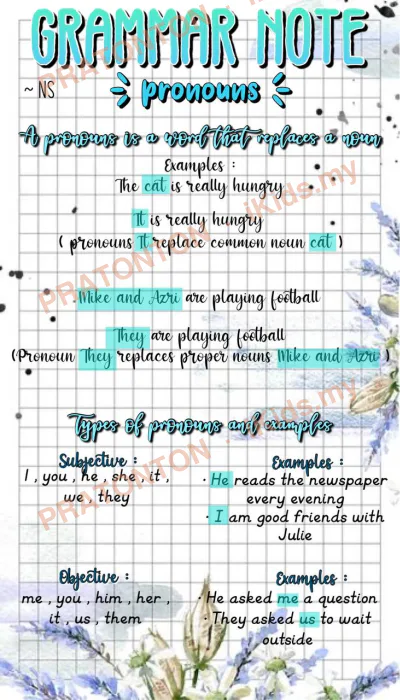 GRAMMAR NOTE
~ NS
pronouns
A pronouns is a word that replaces a noun
Examples :
The cat is really hungry
It is really hungry
( pronouns It replace common noun cat )
Mike and Azri are playing football
They are playing football
(Pronoun They replaces proper nouns Mike and Azri )
Types of pronouns and examples
Subjective :
I , you , he , she , it ,
we , they
Examples :
· He reads the newspaper
every evening
· I am good friends with
Julie
Objective :
me , you , him , her ,
it , us , them
Examples :
· He asked me a question
· They asked us to wait
outside
PRATONTON iKids.my
PRATONTON iKids.my
PRATONTON iKids.my